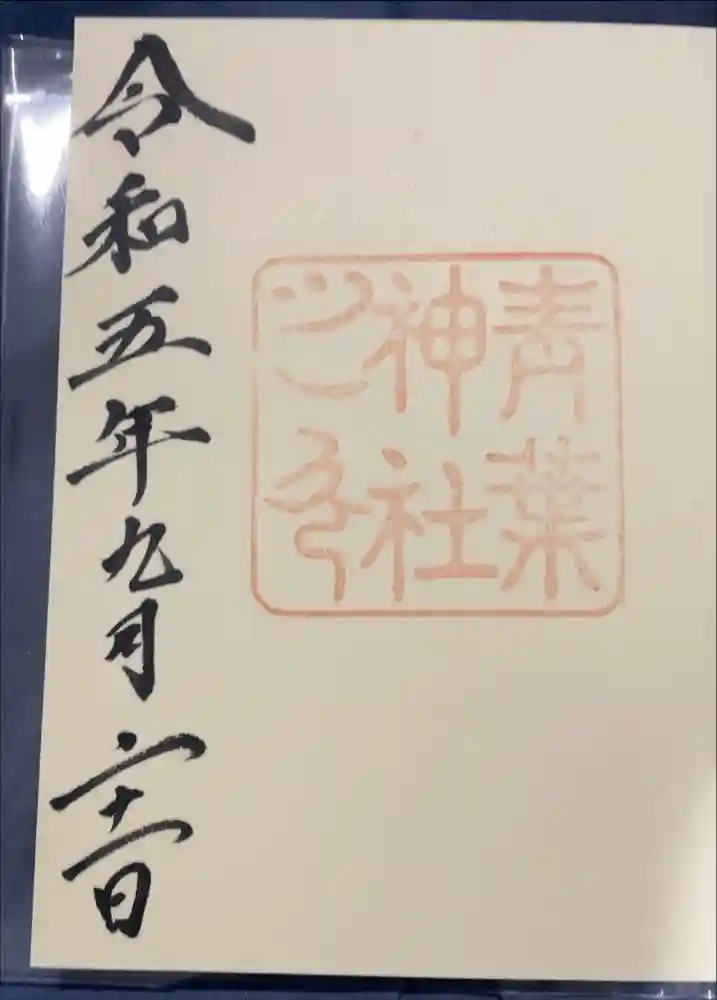 青葉
神社
之印
令和五年九月二十一日